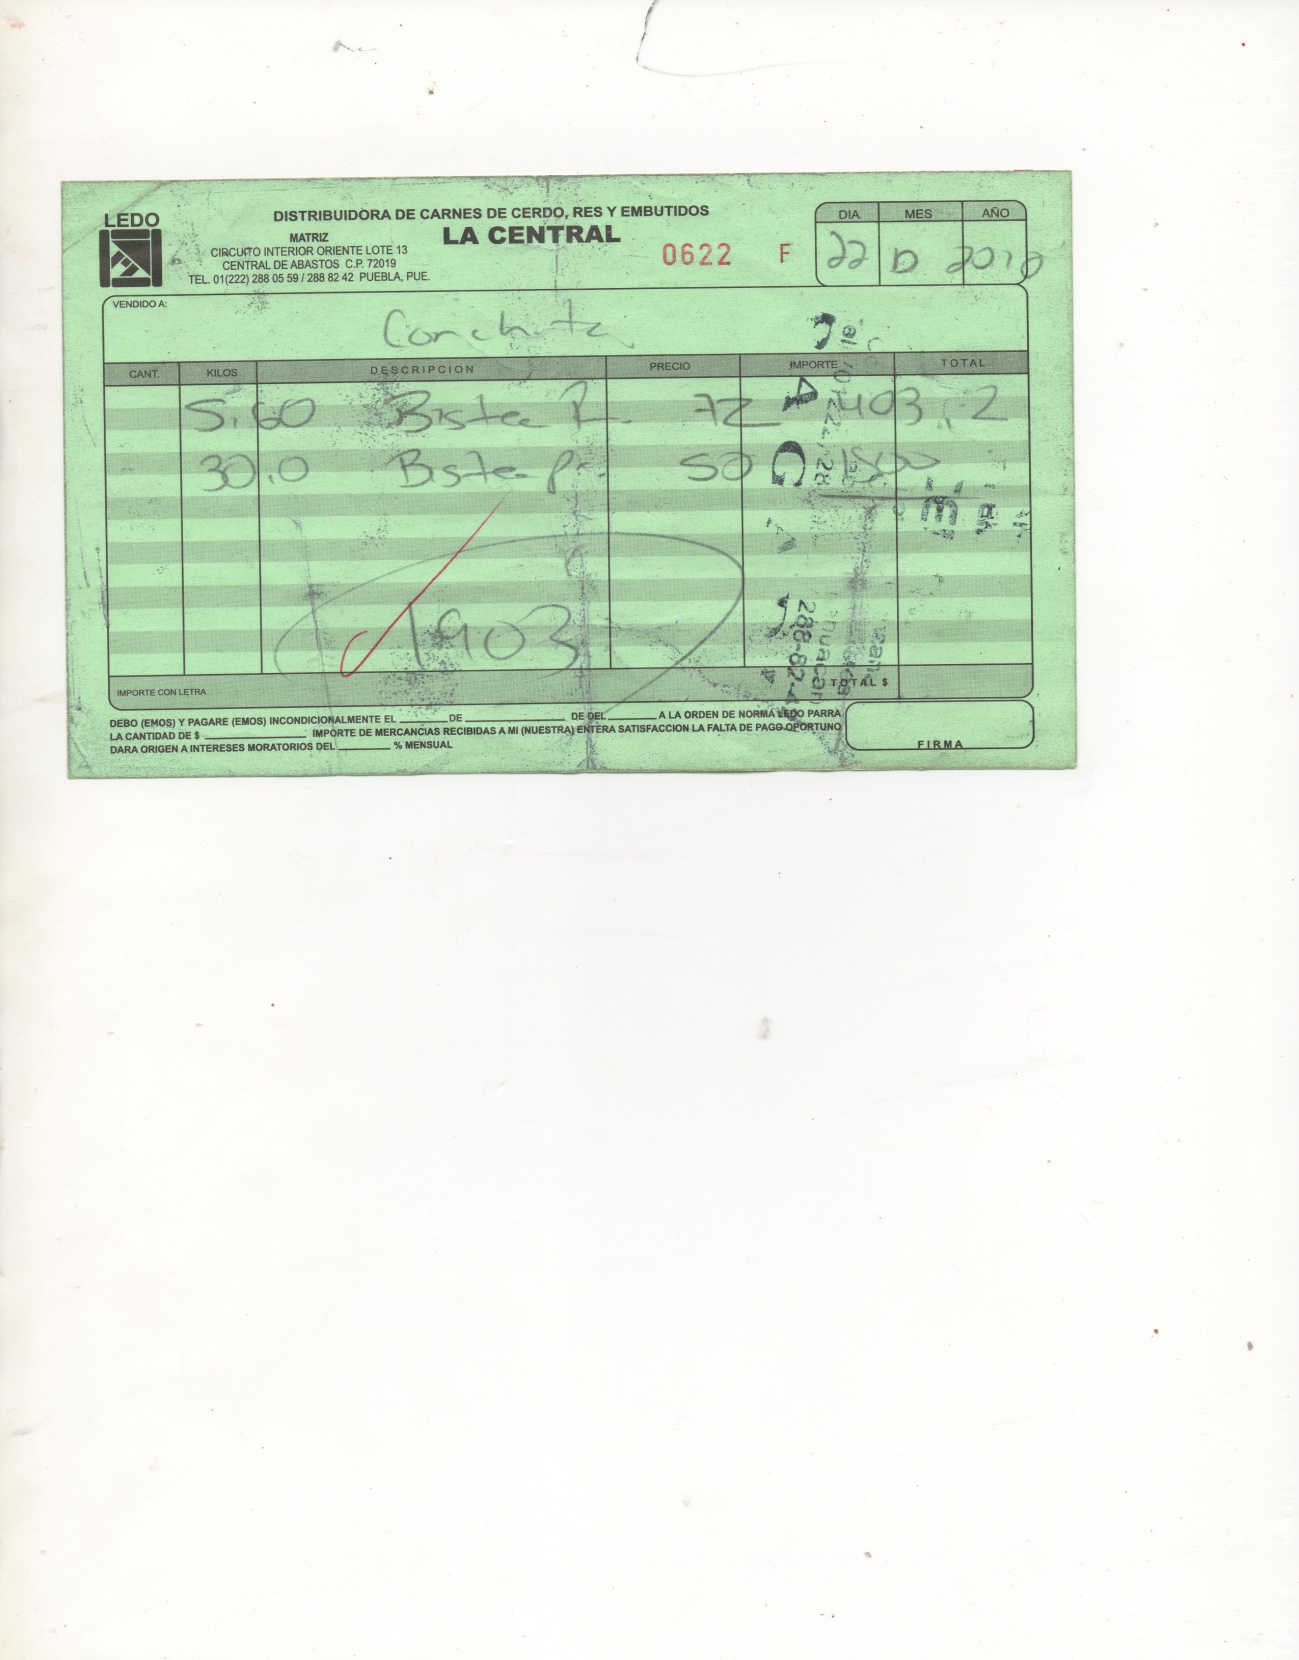 LEDO
DISTRIBUIDORA DE CARNES DE CERDO, RES Y EMBUTIDOS
LA CENTRAL
MATRIZ
CIRCUITO INTERIOR ORIENTE LOTE 13
CENTRAL DE ABASTOS C.P. 72019
TEL. 01(222) 288 05 59 / 288 82 42 PUEBLA, PUE.
0622 F
DIA MES AÑO
22 D 2010
VENDIDO A:
Conchita
CANT. KILOS DESCRIPCION PRECIO IMPORTE TOTAL
5.60 Bistec 72 403.2
30.0 Bistec 50 1500
1903
IMPORTE CON LETRA
TOTAL $
DEBO (EMOS) Y PAGARE (EMOS) INCONDICIONALMENTE EL ________ DE ________ DE DEL ________ A LA ORDEN DE NORMA LEDO PARRA
LA CANTIDAD DE $ ________ IMPORTE DE MERCANCIAS RECIBIDAS A MI (NUESTRA) ENTERA SATISFACCION LA FALTA DE PAGO OPORTUNO
DARA ORIGEN A INTERESES MORATORIOS DEL ________ % MENSUAL
FIRMA